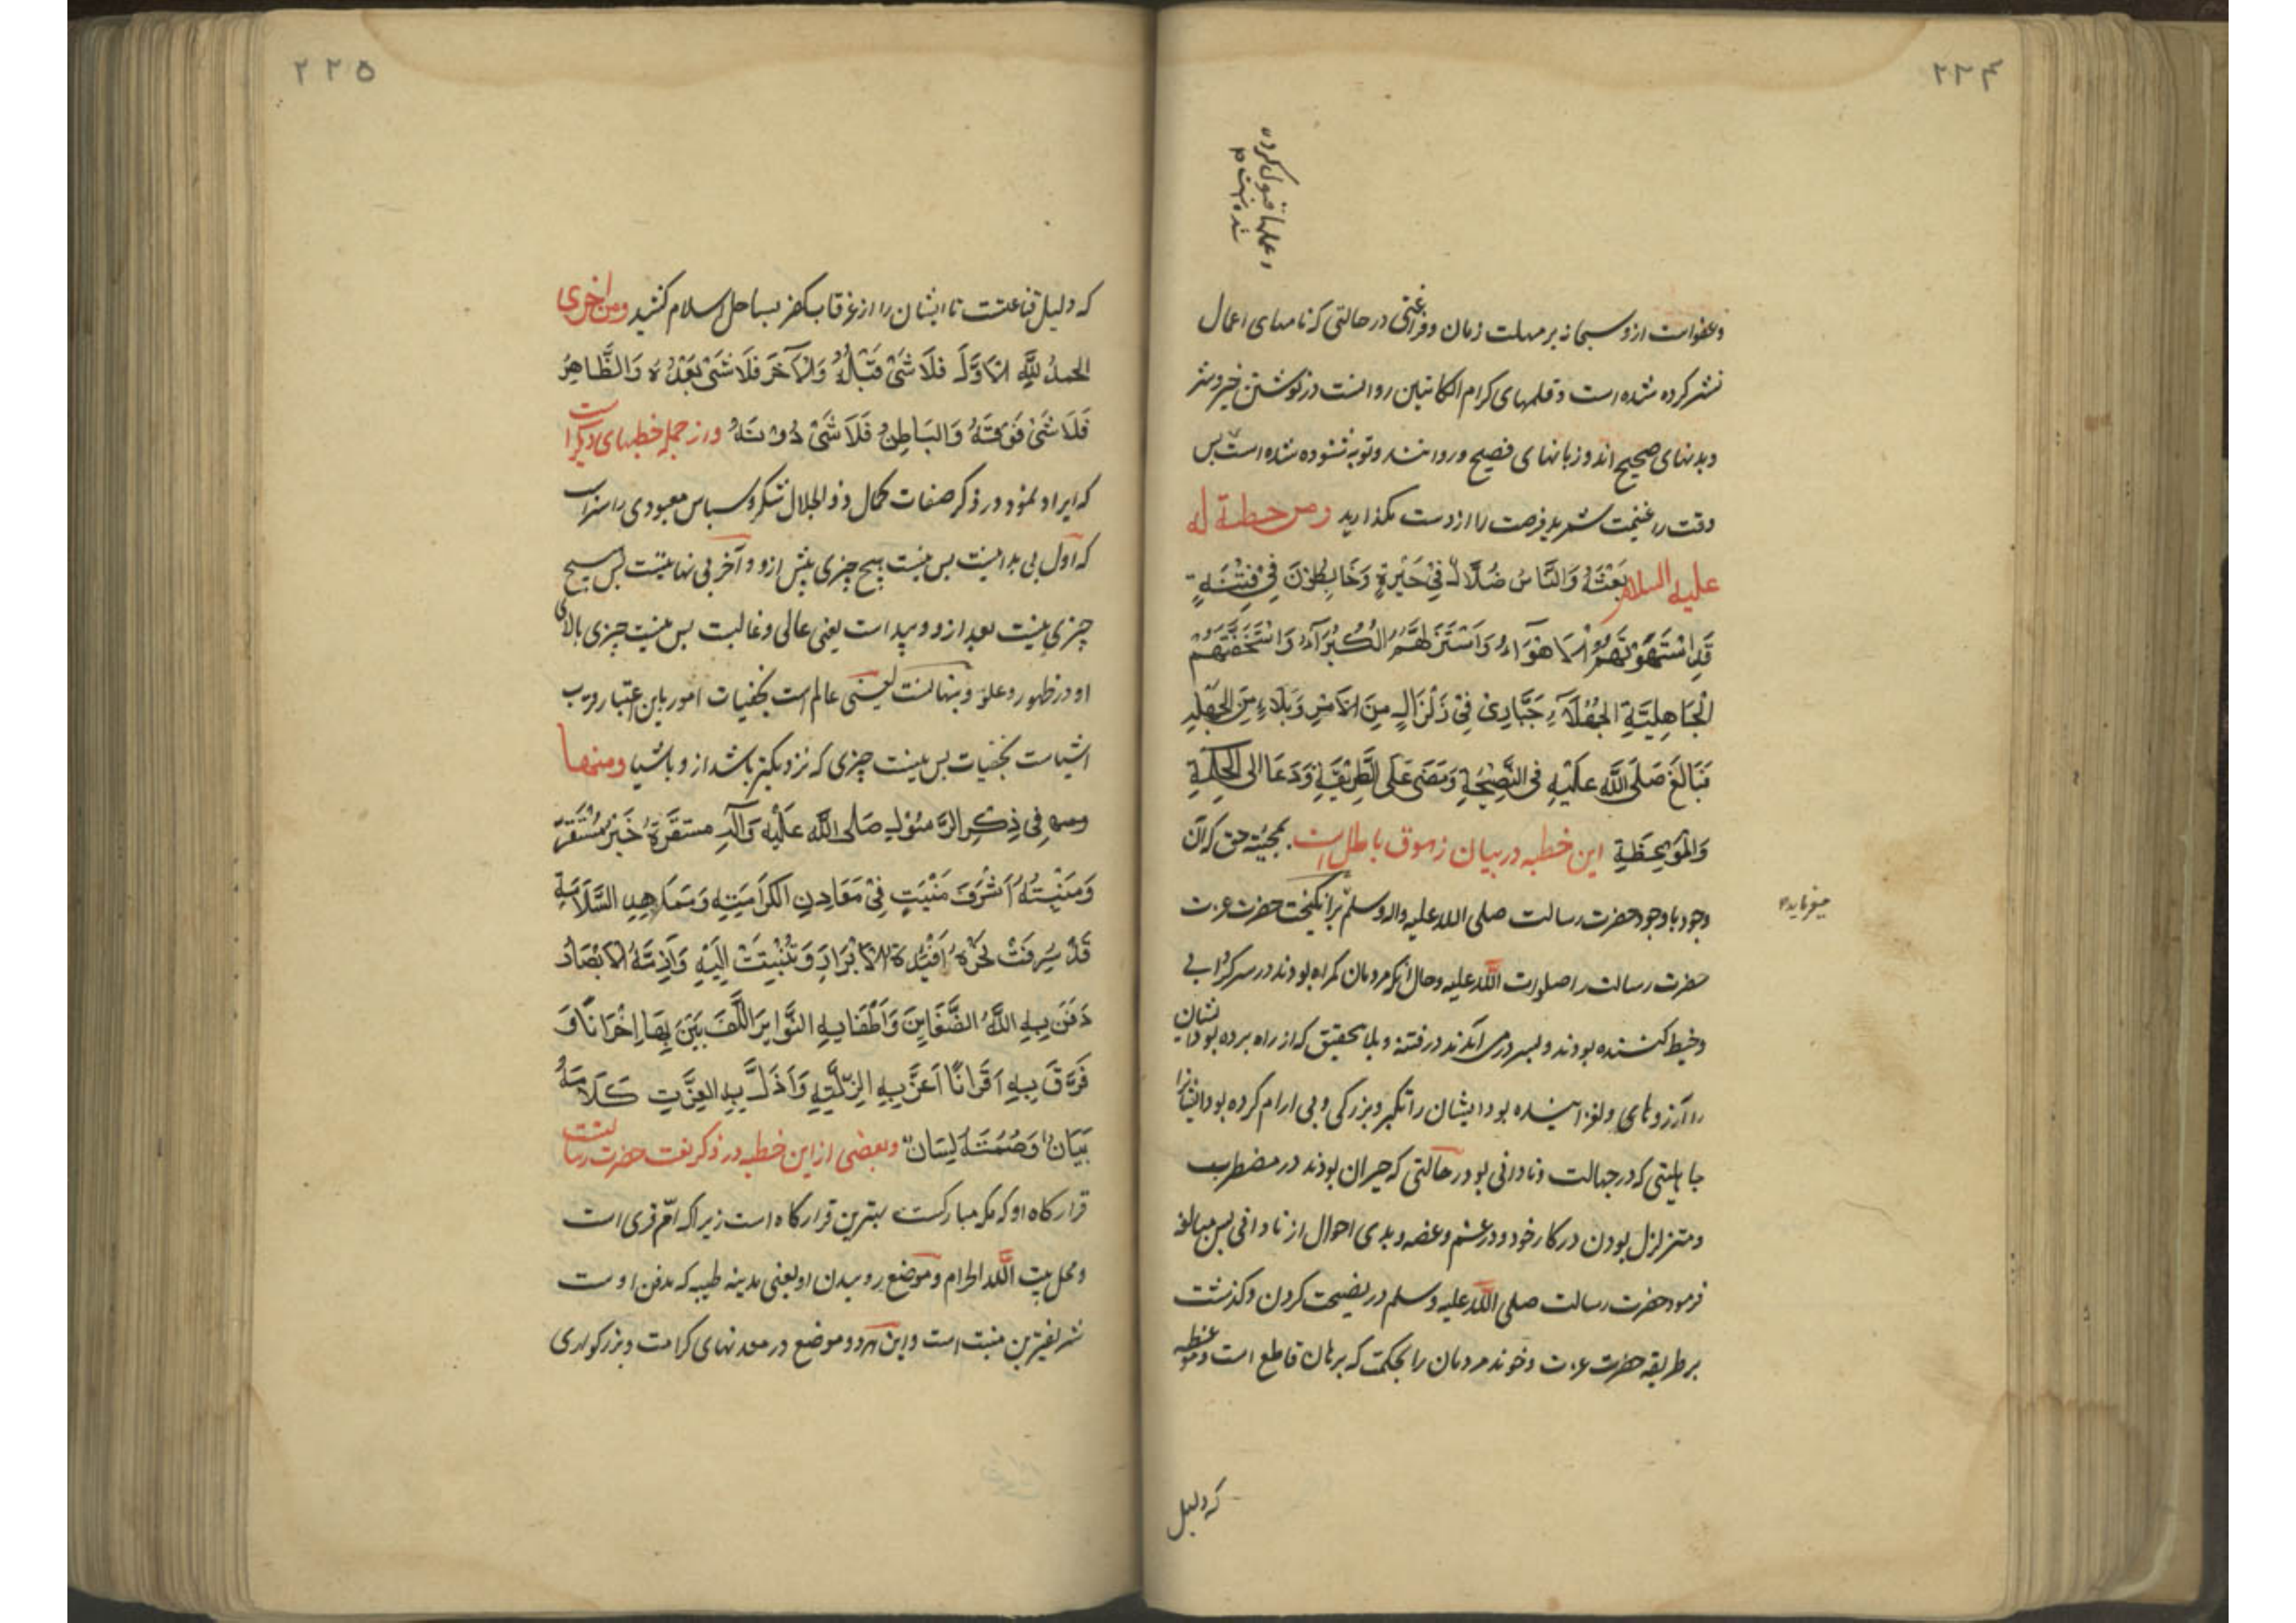 ۲۲۴
و عملها قبول کرده
شده است
وعفو است از و سبحانه بر مهلت زمان و فراغتی در حالتی که نامهای اعمال
نشر کرده شده است و قلمهای کرام الکاتبین روانست در نوشتن خیر و شر
و بدنهای صحیح اند و زبانهای فصیح و روانند و توبه شنوده شده است پس
وقت را غنیمت شمرید فرصت را از دست مگذارید ومن خطبة له
علیه السلام بَعَثَهُ وَالنَّاسُ ضُلَّالٌ فِي حَيْرَةٍ وَخَابِطُونَ فِي فِتْنَةٍ
قَدِ اسْتَهْوَتْهُمُ الاَهْوَآءُ وَاسْتَزَلَّهُمُ الْكُبَرَآءُ وَاسْتَخَفَّتْهُمُ
الْجَاهِلِيَّةِ الجُهَلَآءِ حَيَارى فِي زَلْزَالٍ مِنَ الاَمْرِ وَبَلَاءٍ مِنَ الْجَهْلِ
فَبَالَغَ صَلَّى اللَّهِ عَلَيْهِ فِى النَّصِيْحَةِ وَمَضَى عَلَى الطَّرِيْقَةِ وَدَعَا اِلى الْحِكْمَةِ
وَالمَوْعِظَةِ این خطبه در بیان زهوق باطل است بمجیئ حق که آن
وجود با وجود حضرت رسالت صلی الله علیه واله وسلم برانگیخت حضرت عزت
میفرماید
حضرت رسالت را صلوات الله علیه و حال آنکه مردمان گمراه بودند در سرگردانی
وخبط کننده بودند و بسر درمی آمدند در فتنه و بلا بتحقیق که از راه برده بود ایشان
را آرزوهای و لغزانیده بود ایشان را تکبر و بزرگی و بی ارام کرده بود ایشانرا
جاهلیتی که در جهالت و نادانی بود در حالتی که حیران بودند در مضطرب
و متزلزل بودن در کار خود و در غم و غصه و بدی احوال از نادانی پس مبالغه
فرمود حضرت رسالت صلی الله علیه وسلم در نصیحت کردن و گذشت
بر طریقه حضرت عزت و خواند مردمان را بحکمت که برهان قاطع است و موعظه
که دلیل
۲۲۵
که دلیل قناعتست تا ایشان را از غرقاب کفر بساحل اسلام کشید ومن اخری
الحمدُ لِلَّهِ الاَوَّلَ فلَاشَیْ قَبْلَهُ وَالآخَرَ فَلَاشَیْ بَعْدَهُ وَالظَّاهِرُ
فَلَا شَیْ فَوْقَهُ وَالبَاطِنُ فَلَاشَیْ دُوْنَهُ و از جمله خطبهای دیگر است
که ایراد نمود در ذکر صفات کمال ذو الجلال شکر و سپاس معبودی را سزاست
که اول بی بدایتست پس نیست هیچ چیزی پیش از و و آخر بی نهایتست پس هیچ
چیزی نیست بعد از و و پیداست یعنی عالی و غالبست پس نیست چیزی بالای
او در ظهور و علوّ و پنهانست یعنی عالم است بخفیات امور باین اعتبار قریب
اشیاست بخفیات پس نیست چیزی که نزدیکتر باشد از و باشیا ومنها
ومنها فِي ذِكِرِ الرَّسُوْلِ صَلى اللَّه عَلَيْهِ وَآلِهِ مستقرّهُ خَیْرُ مُسْتَقَرٍّ
وَمَنْبِتُهُ اَشْرَفَ مَنْبِتٍ فِي مَعَادِنِ الكَرَامَةِ وَمَمَاهِدِ السَّلَامَةِ
قَدْ صُرِفَتْ نَحْوَهُ اَفْئِدَةُ الاَبْرَارِ وَثُنِيَتْ اِلَيْهِ وَاَزِمَّةُ الاَبْصَارِ
دَفَنَ بِهِ اللَّهُ الضَّغَايِنَ وَاَطْفَا بِهِ النَّوَايِرَ اَلَّفَ بَيْنَ بِهَا اِخْوَانًا وَ
فَرَّقَ بِهِ اَقْرَانًا اَعَزَّ بِهِ الذِلَّةِ وَاَذَلَّ بِهِ العِزَّةِ كَلَامُهُ
بَيَانٌ وَصُمْتُهُ لِسَانٌ و بعضی از این خطبه در ذکر نعت حضرت رسالتست
قرارگاه او که مکه مبارکست بهترین قرارگاه است زیرا که امّ قری است
و محل بیت الله الحرام و موضع روییدن او یعنی مدینه طیبه که مدفن اوست
شریفترین منبت است و این هر دو موضع در معدنهای کرامت و بزرگواری